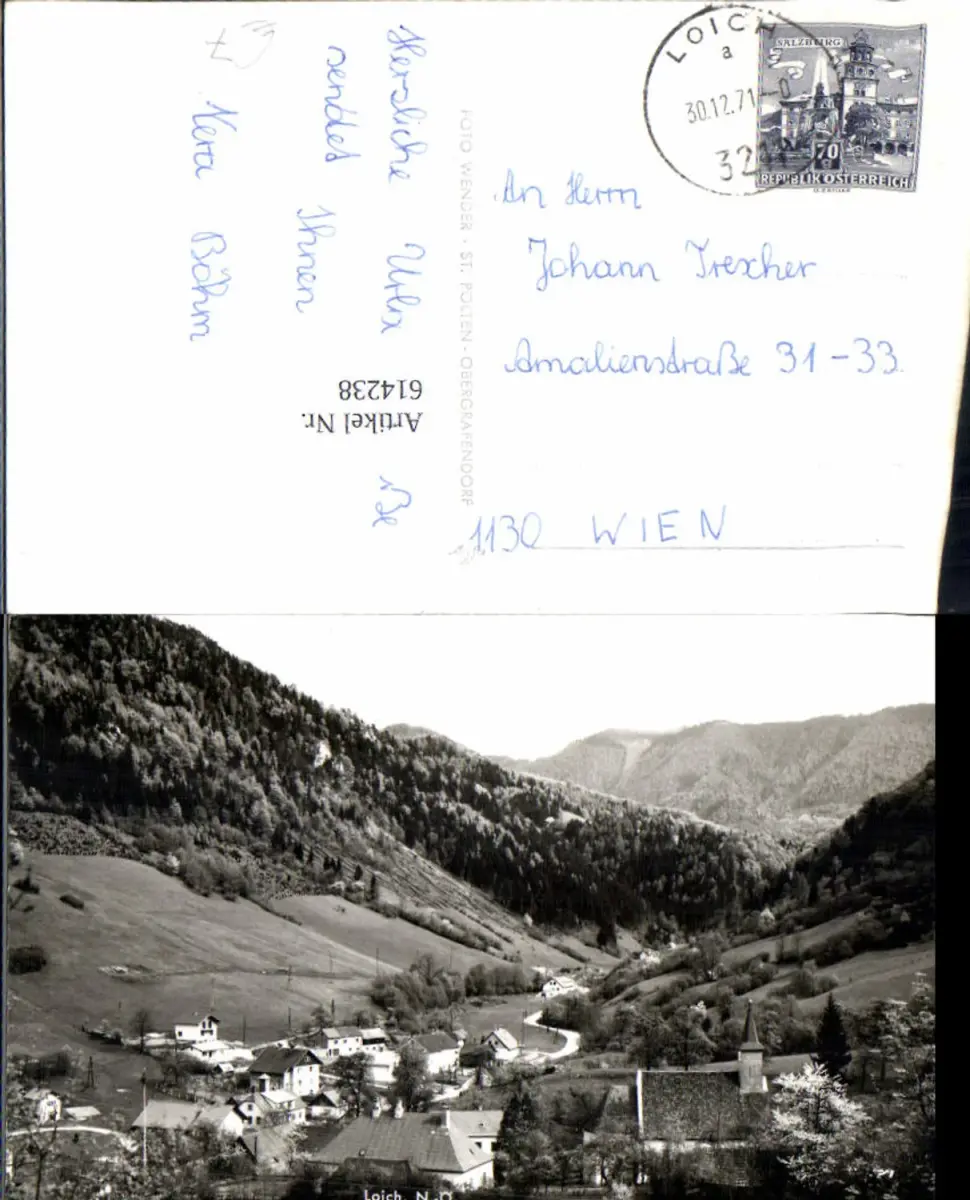 Herzliche Urlx üße
sendet
Ihnen
Vera Böhm
7
Artikel Nr.
614238
FOTO WENDER · ST. PÖLTEN-OBERGRAFENDORF
LOICH
a
30.12.71
SALZBURG
70
REPUBLIK ÖSTERREICH
An Herrn
Johann Trescher
Amalienstraße 31-33
1130 WIEN
Loich, N.-Ö.